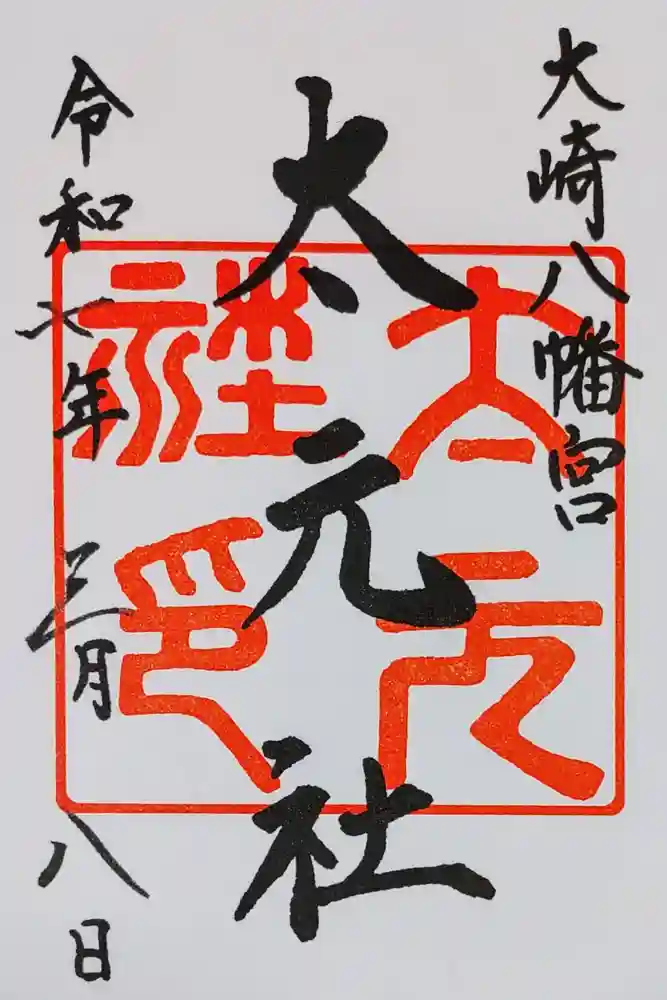 大崎八幡宮
太元社
太元社印
令和七年 三月 八日